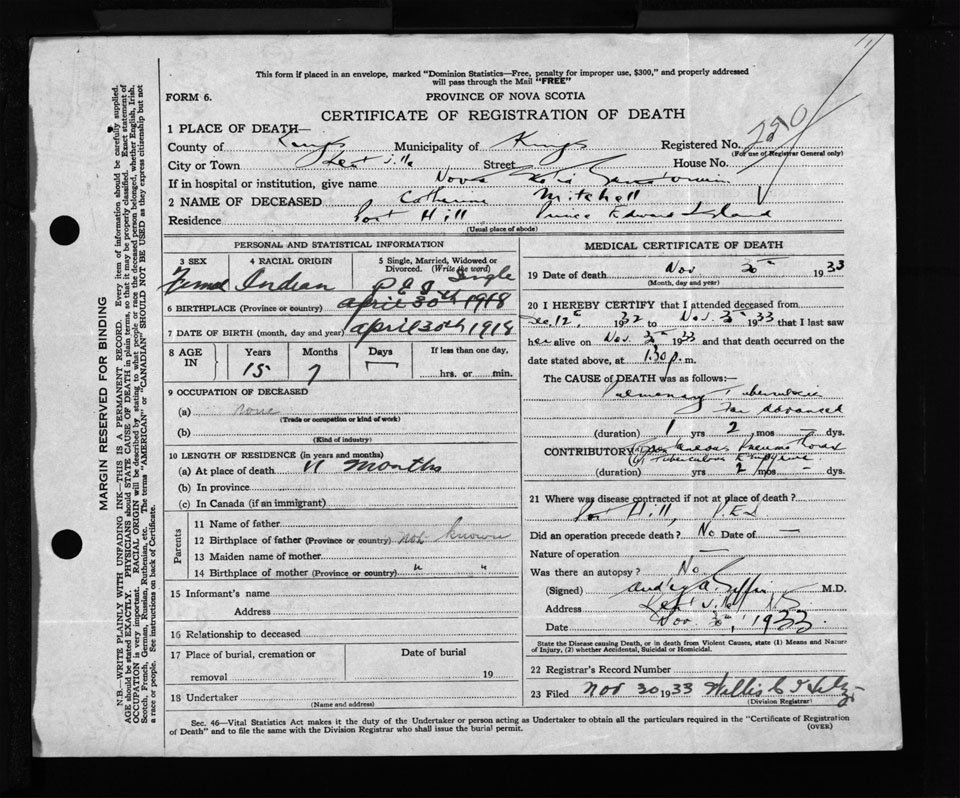 This form if placed in an envelope, marked "Dominion Statistics—Free, penalty for improper use, $300," and properly addressed
will pass through the Mail "FREE"
FORM 6.
PROVINCE OF NOVA SCOTIA
CERTIFICATE OF REGISTRATION OF DEATH
1 PLACE OF DEATH—
County of Kings Municipality of Kings Registered No.
(For use of Registrar General only)
City or Town Kentville Street House No.
If in hospital or institution, give name Nova Scotia Sanatorium
2 NAME OF DECEASED Catherine Mitchell
Residence Port Hill Prince Edward Island
(Usual place of abode)
PERSONAL AND STATISTICAL INFORMATION
3 SEX 4 RACIAL ORIGIN 5 Single, Married, Widowed or
Divorced. (Write the word)
Female Indian Single
P E I
6 BIRTHPLACE (Province or country) april 30th 1918
7 DATE OF BIRTH (month, day and year) april 30th 1918
8 AGE IN Years Months Days If less than one day,
15 7 hrs. or min.
9 OCCUPATION OF DECEASED
(a) none
(Trade or occupation or kind of work)
(b)
(Kind of industry)
10 LENGTH OF RESIDENCE (in years and months)
(a) At place of death 11 months
(b) In province
(c) In Canada (if an immigrant)
Parents
11 Name of father
12 Birthplace of father (Province or country) not known
13 Maiden name of mother
14 Birthplace of mother (Province or country) " "
15 Informant's name
Address
16 Relationship to deceased
17 Place of burial, cremation or Date of burial
removal 19
18 Undertaker
(Name and address)
MEDICAL CERTIFICATE OF DEATH
19 Date of death Nov 30th 1933
(Month, day and year)
20 I HEREBY CERTIFY that I attended deceased from
Dec. 12 1932 to Nov. 30 1933 that I last saw
her alive on Nov. 30 1933 and that death occurred on the
date stated above, at 1.30 p. m.
The CAUSE of DEATH was as follows:—
Pulmonary Tuberculosis
Far Advanced
(duration) 1 yrs 2 mos — dys.
CONTRIBUTORY Spontaneous Pneumothorax
Tuberculous Empyema
(duration) yrs 2 mos — dys.
21 Where was disease contracted if not at place of death?
Port Hill, P.E.I
Did an operation precede death? No Date of —
Nature of operation —
Was there an autopsy? No
(Signed) M.D.
Address Kentville N S
Date Nov 30, 1933
State the Disease causing Death, or in death from Violent Causes, state (1) Means and Nature
of Injury, (2) whether Accidental, Suicidal or Homicidal.
22 Registrar's Record Number
23 Filed Nov 30 1933 Willis
(Division Registrar)
Sec. 46—Vital Statistics Act makes it the duty of the Undertaker or person acting as Undertaker to obtain all the particulars required in the "Certificate of Registration
of Death" and to file the same with the Division Registrar who shall issue the burial permit.
(OVER)
MARGIN RESERVED FOR BINDING
N.B.—WRITE PLAINLY WITH UNFADING INK—THIS IS A PERMANENT RECORD. Every item of information should be carefully supplied.
AGE should be stated EXACTLY. PHYSICIANS should STATE CAUSE OF DEATH in plain terms, so that it may be properly classified. Exact statement of
OCCUPATION is very important. RACIAL ORIGIN will be described by stating to what people or race the deceased person belonged, whether English, Irish,
Scotch, French, German, Russian, Ruthenian, etc. The terms "AMERICAN" or "CANADIAN" SHOULD NOT BE USED as they express citizenship but not
a race or people. See instructions on back of Certificate.